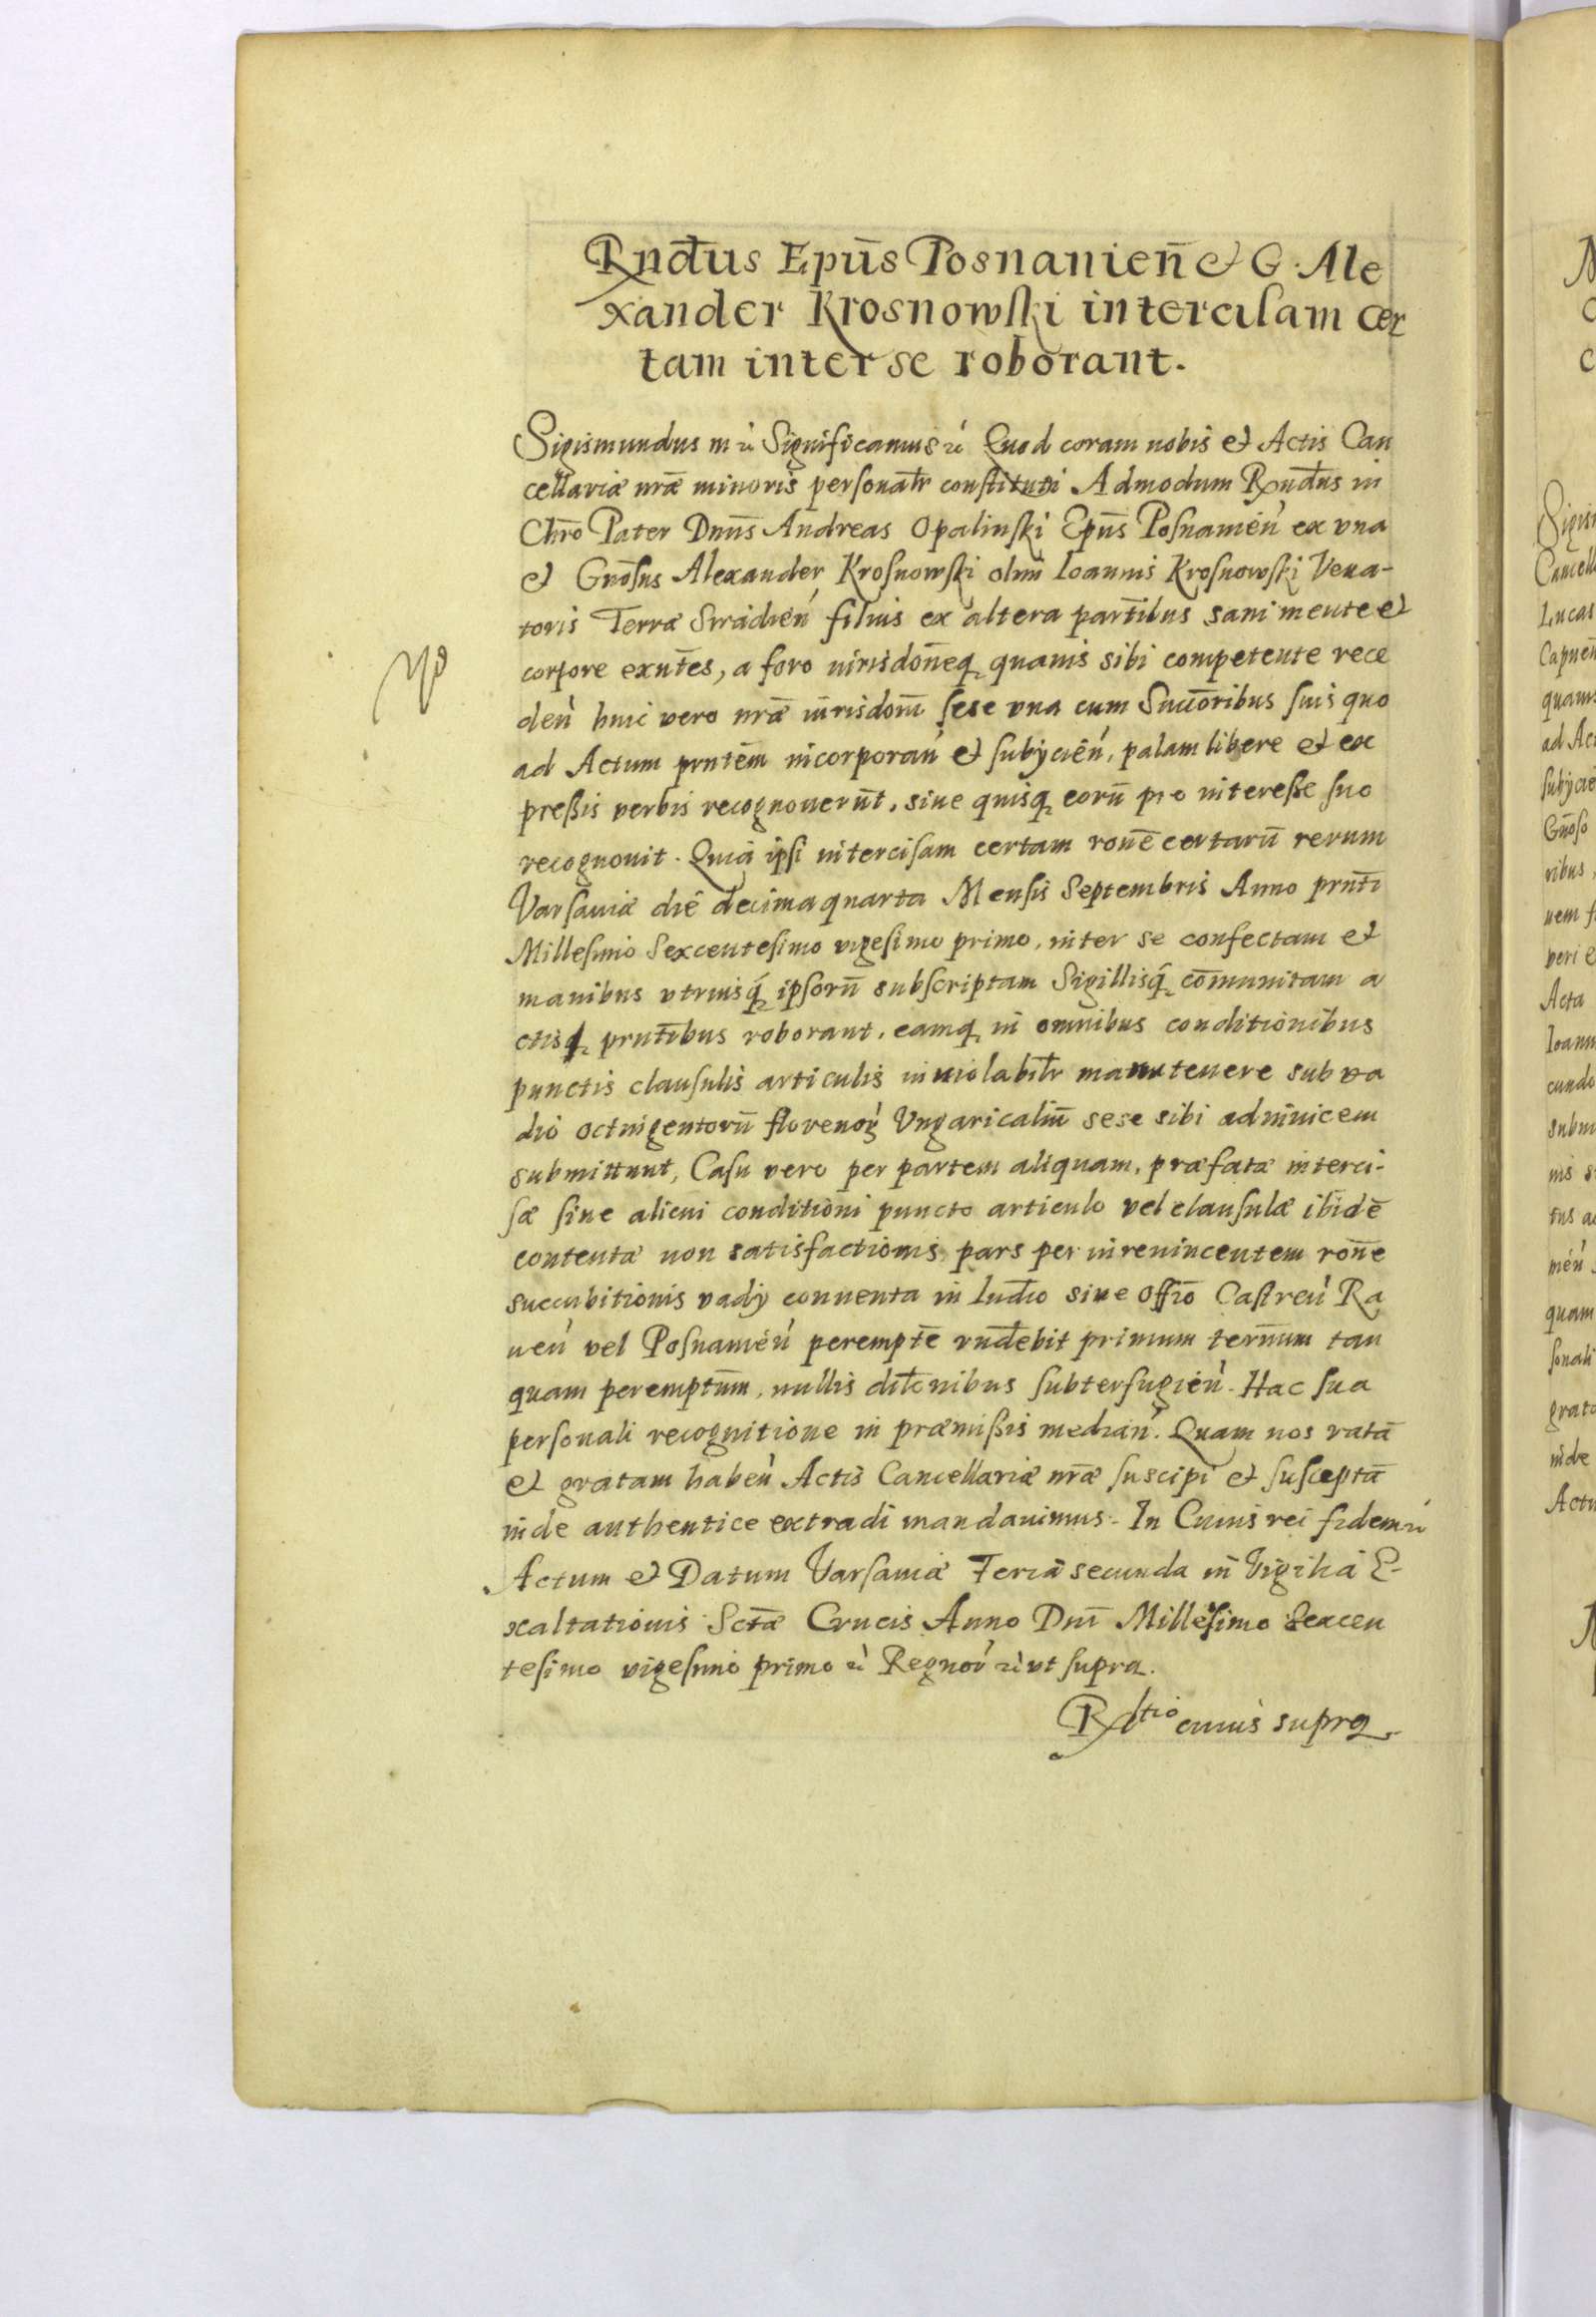 Rndus Epūs Posnanien̄ et G. Ale
xander Krosnowski intercisam cer
tam inter se roborant.
Sigismundus III &c Significamus &c Quod coram nobis et Actis Can
cellariæ nr̄æ minoris personalr̄ constituti Admodum Rn̄dus in
Chr̄o Pater Dnn̄s Andreas Opalinski Epūs Posnanień ex vna
et Gn̄osus Alexander Krosnowski olim Ioannis Krosnowski Vena-
toris Terræ Siradień filius ex altera partibus sani mente et
corpore exn̄tes, a foro iurisdon̄eq, quauis sibi competente rece
deń huic vero nr̄æ iurisdoni̅ sese vna cum Succ̄oribus suis quo
ad Actum prn̄tem incorporań et subijcień, palam libere et ex
pressis verbis recognouerūt, siue quisq, eorū pro interesse suo
recognouit. Quia ipsi intercisam certam ron̄e certarū rerum
Varsauiæ die decima quarta Mensis Septembris Anno prn̄ti
Millesimo Sexcentesimo vigesimo primo, inter se confectam et
manibus vtriusq́, ipsorū subscriptam Sigillisq́, cōmunitam a
ctisq, prn̄tibus roborant, eamq, in omnibus conditionibus
punctis clausulis articulis inuiolabilr̄ manutenere sub va
dio octuigentorū florenoꝝ Vngaricaliū sese sibi adinuicem
submittunt, Casu vero per partem aliquam, præfatæ interci-
sæ siue alicui conditioni puncto articulo vel clausulæ ibidē
contentæ non satisfactionis, pars per inreuincentem ron̄e
succubitionis vadij conuenta in Iud̄io siue Offi̅o Castreń Ra
ueń vel Posnanień perempt̄e rn̄debit primum term̄um tan
quam perempt̄um, nullis dilōnibus subterfugień. Hac sua
personali recognitione in præmissis mediań. Quam nos ratā
et gratam habeń Actis Cancellariæ nr̄æ suscipi et susceptā
inde authentice extradi mandauimus. In Cuius rei fidem &c
Actum et Datum Varsauiæ Feria secunda in Vigilia E-
xaltationis Sctæ Crucis Anno Dnī Millesimo Sexcen
tesimo vigesimo primo &c Regnoꝝ &c vt supra.
Rltio cuius supra.